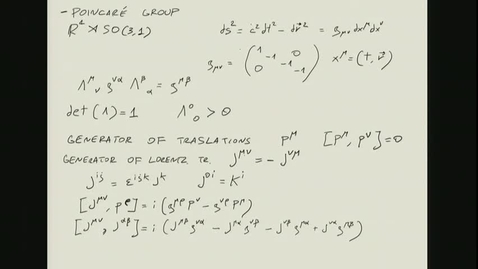 - POINCARÉ GROUP
R⁴ ⋊ SO(3,1)
ds² = c²dt² - dr⃗² = g_μν dx^μ dx^ν
g_μν = ( 1 -1 0 0 -1 -1 ) x^μ = (t, r⃗)
Λ^μ_ν g^να Λ^β_α = g^μβ
det(Λ) = 1 Λ⁰₀ > 0
GENERATOR OF TRASLATIONS P^μ [P^μ, P^ν] = 0
GENERATOR OF LORENTZ TR. J^μν = - J^νμ
J^ij = ε^ijk J^k J^0i = K^i
[J^μν, P^ρ] = i (g^μρ P^ν - g^νρ P^μ)
[J^μν, J^αβ] = i (J^μβ g^να - J^μα g^νβ - J^νβ g^μα + J^να g^μβ)